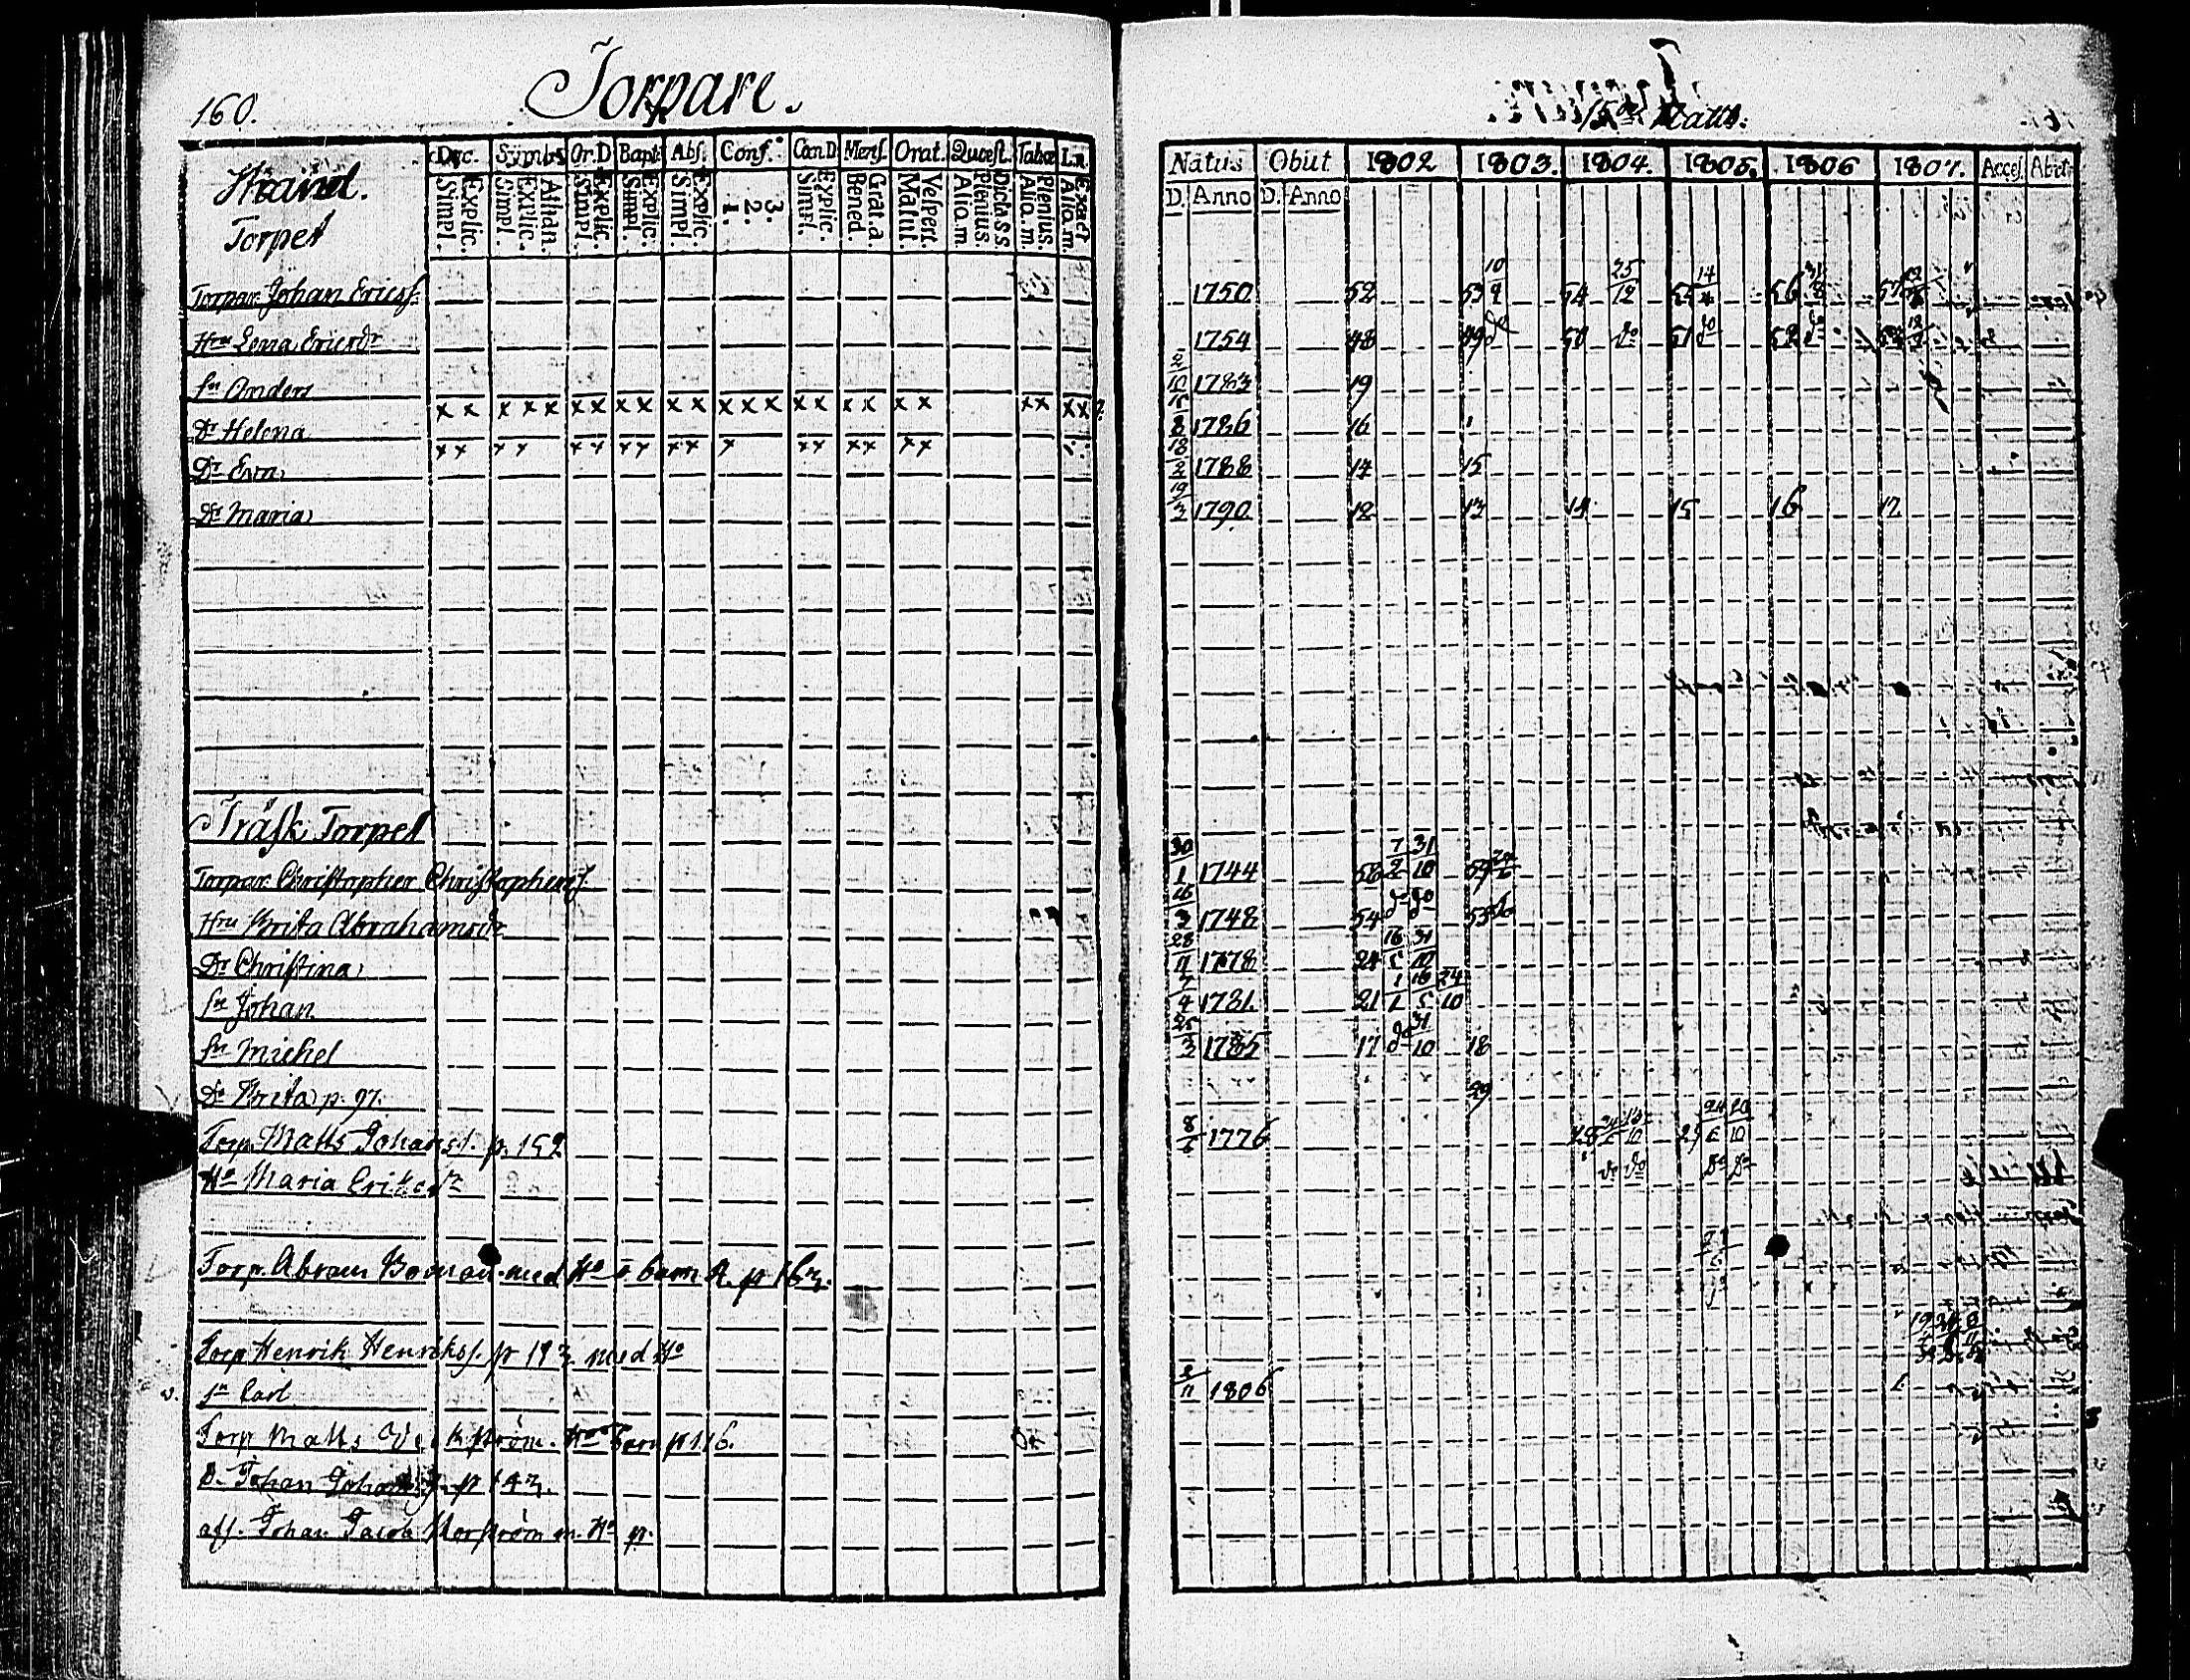 160.
Torpare.
Strand.
Torpet
Dec. Symb. Or.D Bapt. Abs. Conf. Cœn.D Mens. Orat. Quæst. Tabæ L.n.
Simpl. Explic. Simpl. Explic. Athan. Simpl. Explic. Simpl. Explic. Simpl. Explic. 1. 2. 3. Simpl. Explic. Bened. Grat. a. Matut. Vespert. Alio. m. Plenius. Dicta S.S. Alio. m. Plenius. Alio. m. Exact
Natus Obiit 1802 1803. 1804. 1805. 1806 1807. Acces. Abit.
D. Anno D. Anno
Torpar. Johan Ericss. 1750 52 53 10/9 54 25/12 55 14/4 56 57
Hru Lena Ericsdr 1754 48 49 do 50 do 51 do 52 do
Sn Anders 2/10 1783 19
x x x x x x x x x x x x x x x x x x x x x x x x
Dr Helena 1786 16
x x x x x x x x x x x x x x x x x
Dr Eva 18/2 1788 14 15
Dr Maria 19/3 1790 12 13 14 15 16 17
Träsk Torpet
Torpar. Christopher Christophers. 30/1 1744 58 7/2 31/10 59
Hru Brita Abrahamsdr 16/3 1748 54 do do 55 do
Dr Christina 28/11 1778 24 16/5 31/10
Sn Johan 7/4 1781. 21 1/1 16/5 24/10
Sn Michel 25/3 1785 17 do 31/10 18
Dr Brita p. 97. 29
Torp. Matts Johanss. p. 152 8/6 1776 28 29 24/6 20/10
Ho Maria Eriksdr do do Do Do
Torp. Abram Boman med Ho o barn p 163.
Torp Henrik Henrikss. p 193 med Ho
v. Sn Carl 2/11 1806
Torp Matts barn p 116.
D. Johan Johanss. p 143.
afs. Johan Jacob Norström m. Ho p.